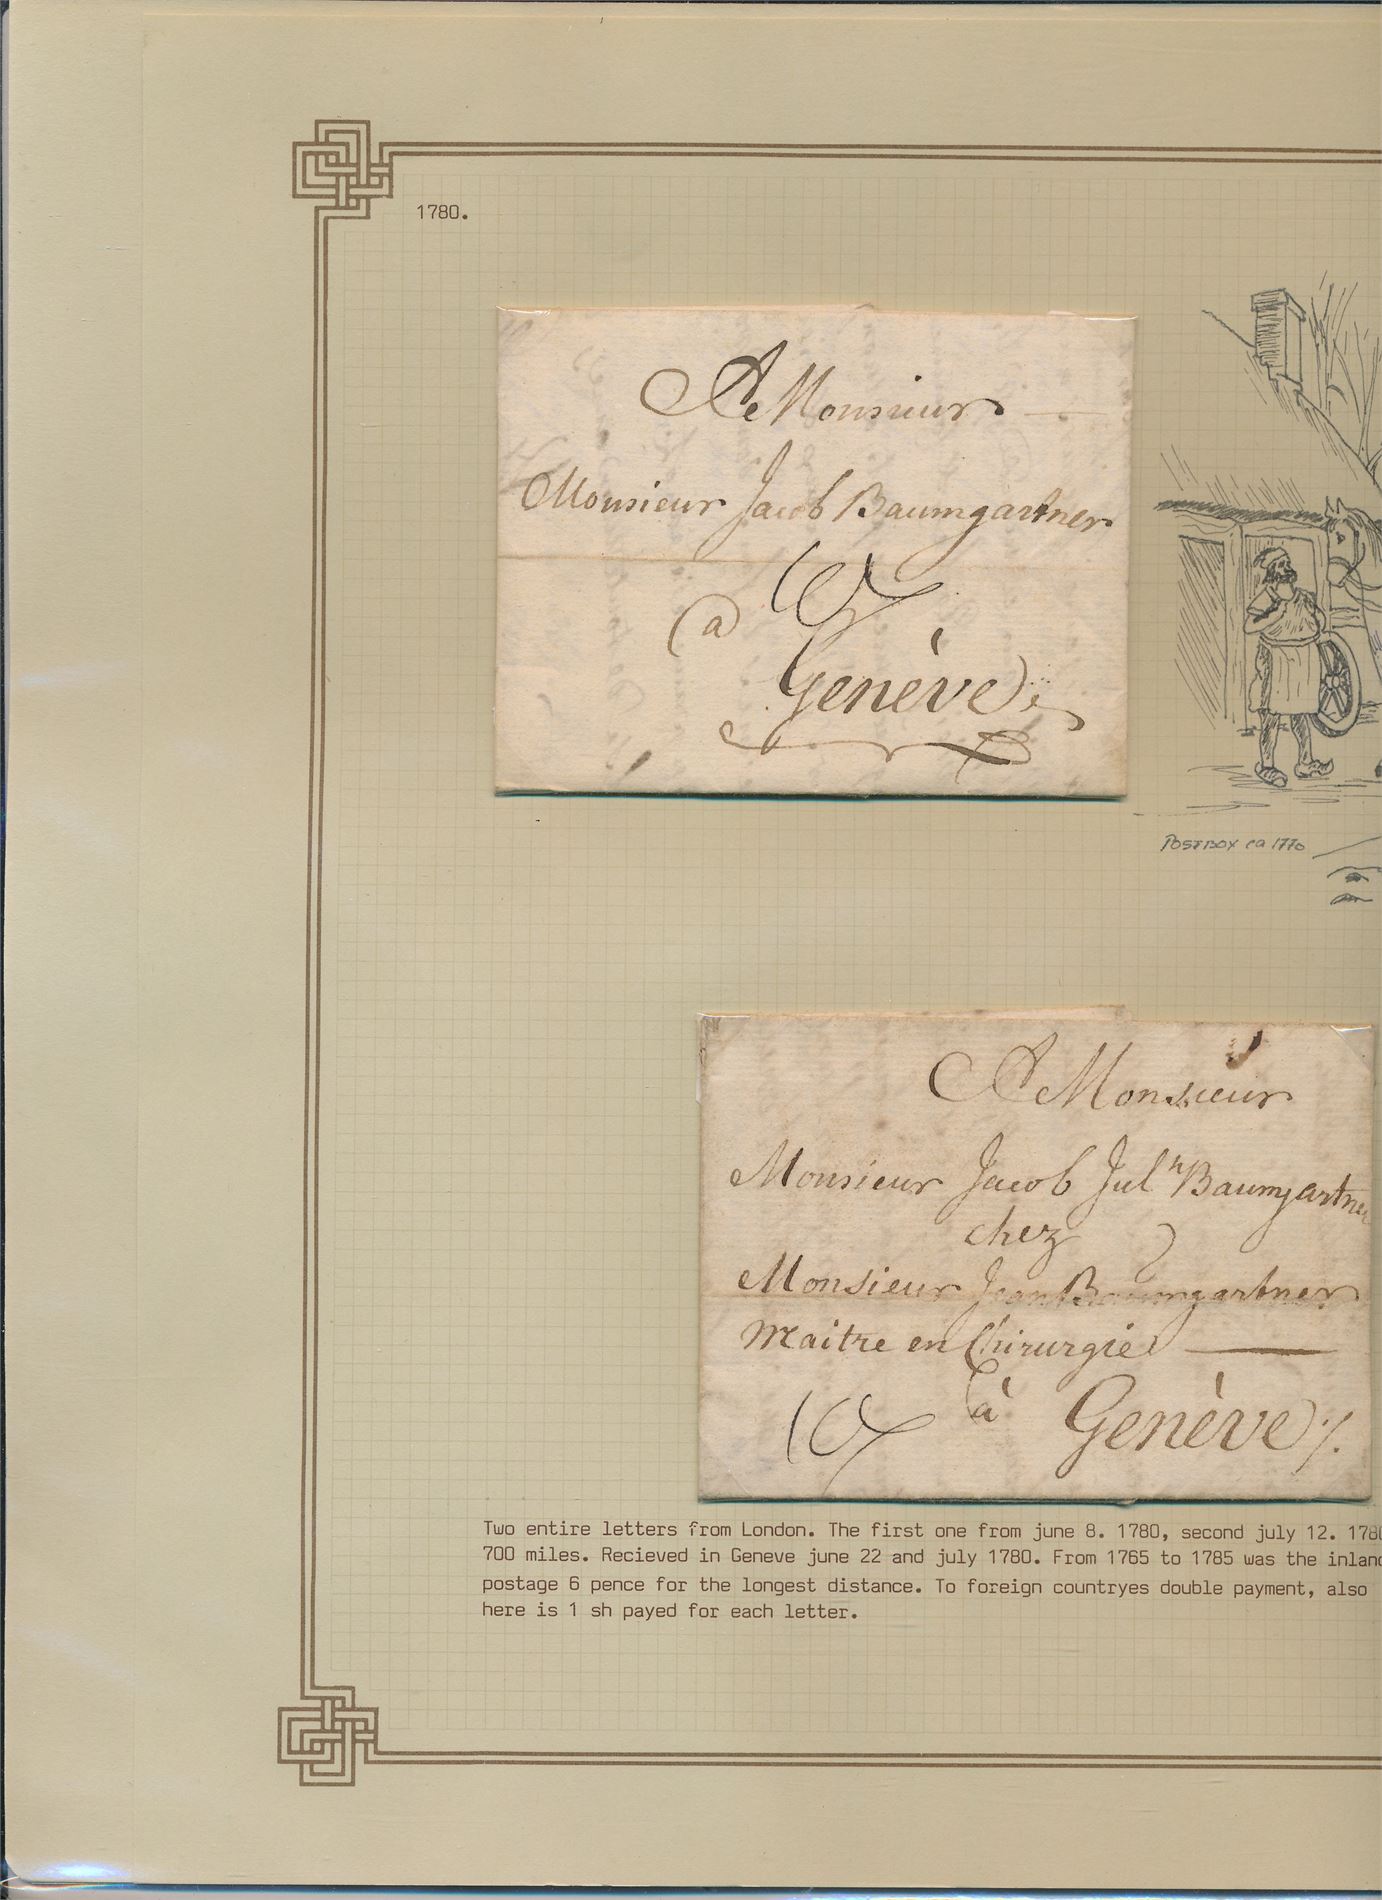 1780.
A Monsieur
Monsieur Jacob Baumgartner
a
Genève
POSTBOX ca 1770
A Monsieur
Monsieur Jacob Jul.n Baumgartner
chez
Monsieur Jean Baumgartner
Maitre en Chirurgie
à Genève
Two entire letters from London. The first one from june 8. 1780, second july 12. 1780
700 miles. Recieved in Geneve june 22 and july 1780. From 1765 to 1785 was the inland
postage 6 pence for the longest distance. To foreign countryes double payment, also
here is 1 sh payed for each letter.